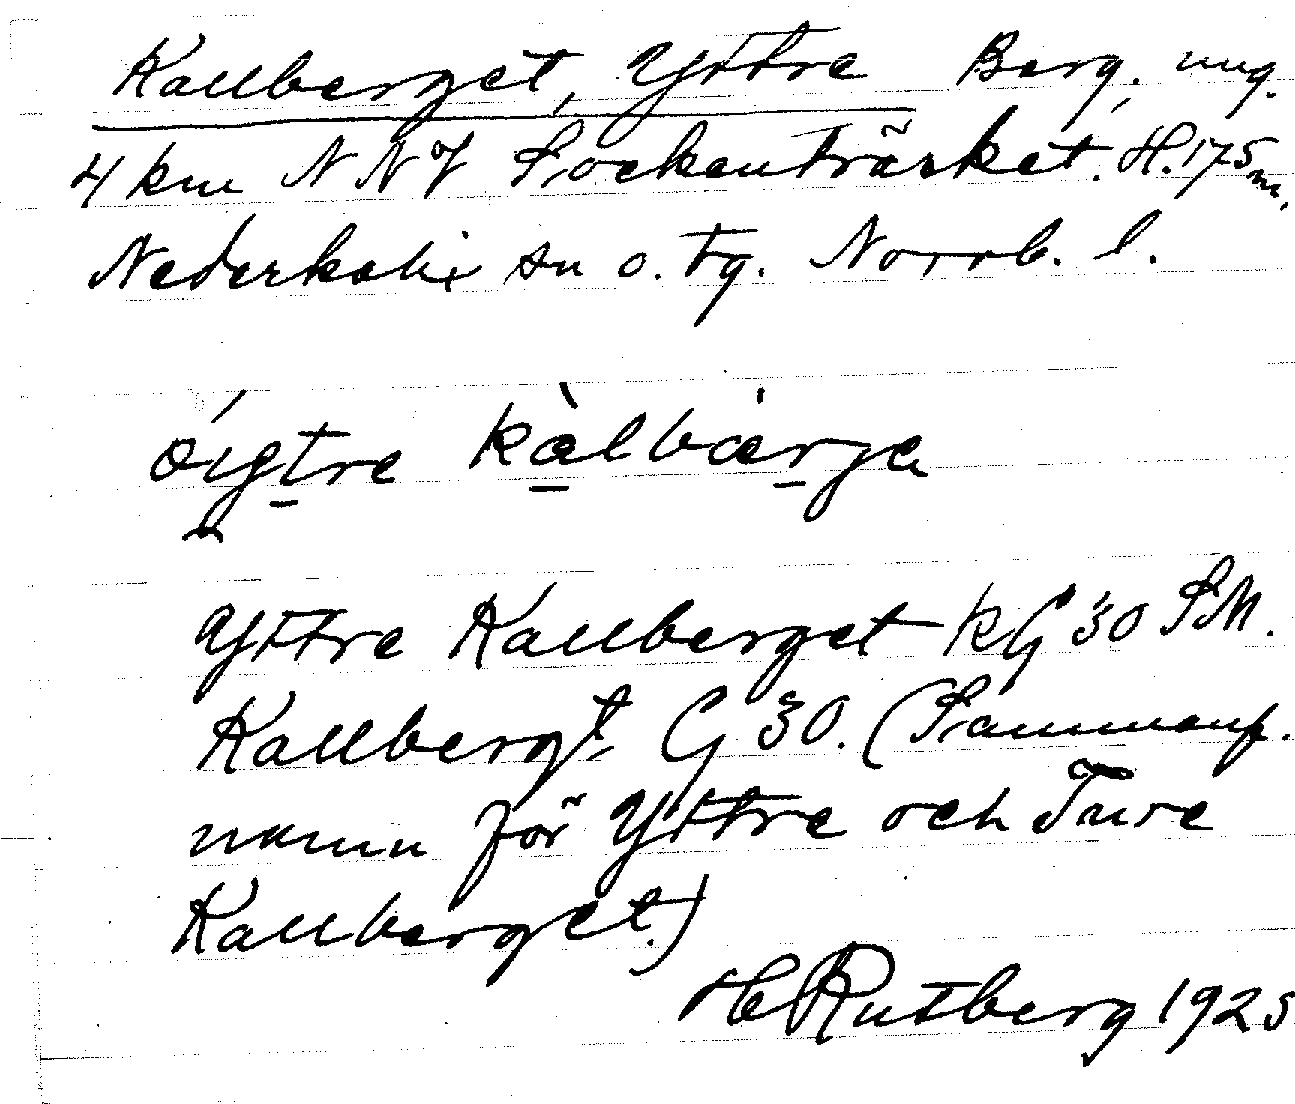 Kallberget, Yttre Berg, ung.
4 km NNV Sockenträsket. H. 175 m.
Nederkalix sn o. tg. Norrb. l.
Yttre Kallberget KG 30 SM.
Kallbergt, G 30. (Sammanf.
namn för Yttre och Inre
Kallberget.)
H Rutberg 1925